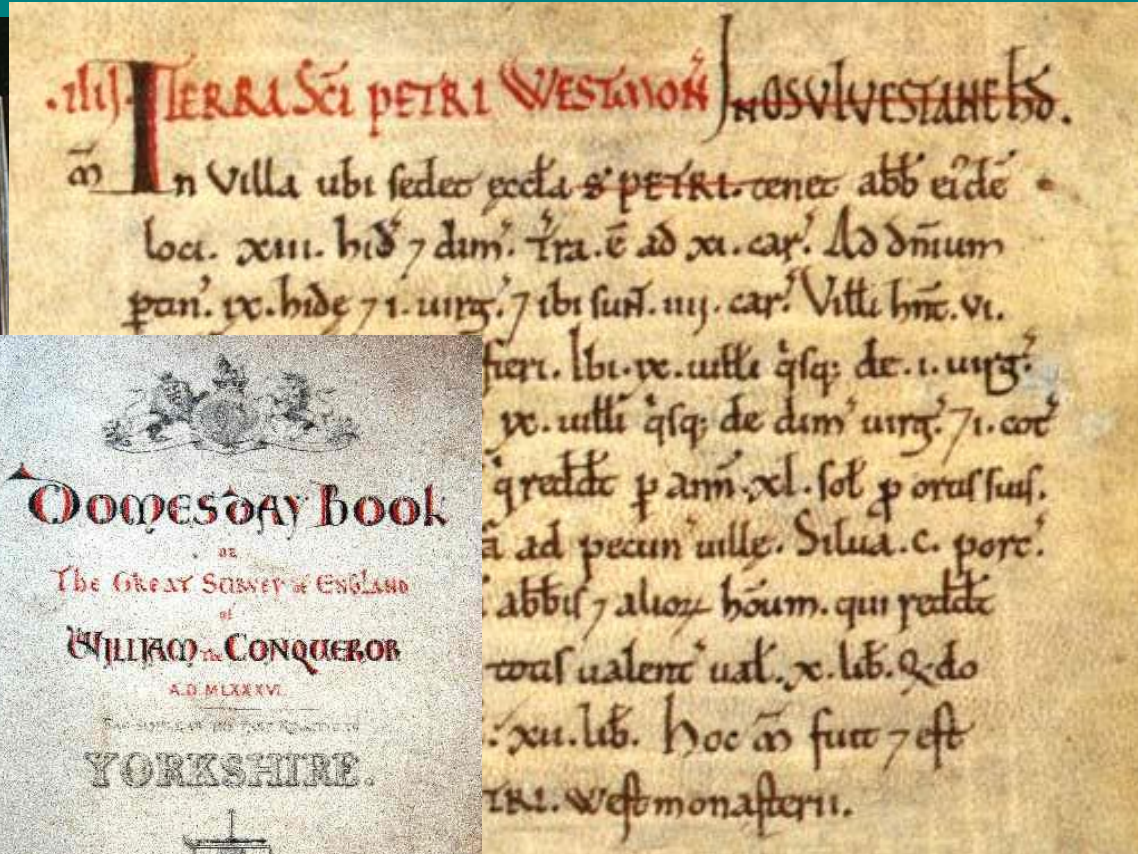 .iiij. TERRA Sc̃i PETRI WESTMOÑ IN OSVLVESTANE hđ.
ᵯ In Villa ubi sedet ecc̃la s' PETRI. tenet abb̃ ei'dē
loci. xiii. hid' ⁊ dim'. t̃ra. ē ad xi. car'. Ad dñium
ꝑtin'. ix. hidę ⁊ i. uirg'. ⁊ ibi sunt. iiij. car'. Vilłi hñt. vi.
fieri. Ibi. ix. uilłi q'sq; de. i. uirg'.
ix. uilłi q'sq; de dim' uirg'. ⁊ i. cot'
q' redđt p ann̄. xl. soł ꝓ ortis suis.
ā ad pecun' uillę. Silua. c. porc'.
abb̃is ⁊ alioꝝ hōum. qui redđt
totis ualent' uał. x. lib̃. Q̃do
: xii. lib̃. Hoc ᵯ fuit ⁊ est
TRI. Westmonasterii.
DOMESDAY BOOK
OR
THE GREAT SURVEY of ENGLAND
of
WILLIAM the CONQUEROR
A.D. MLXXXVI.
YORKSHIRE.